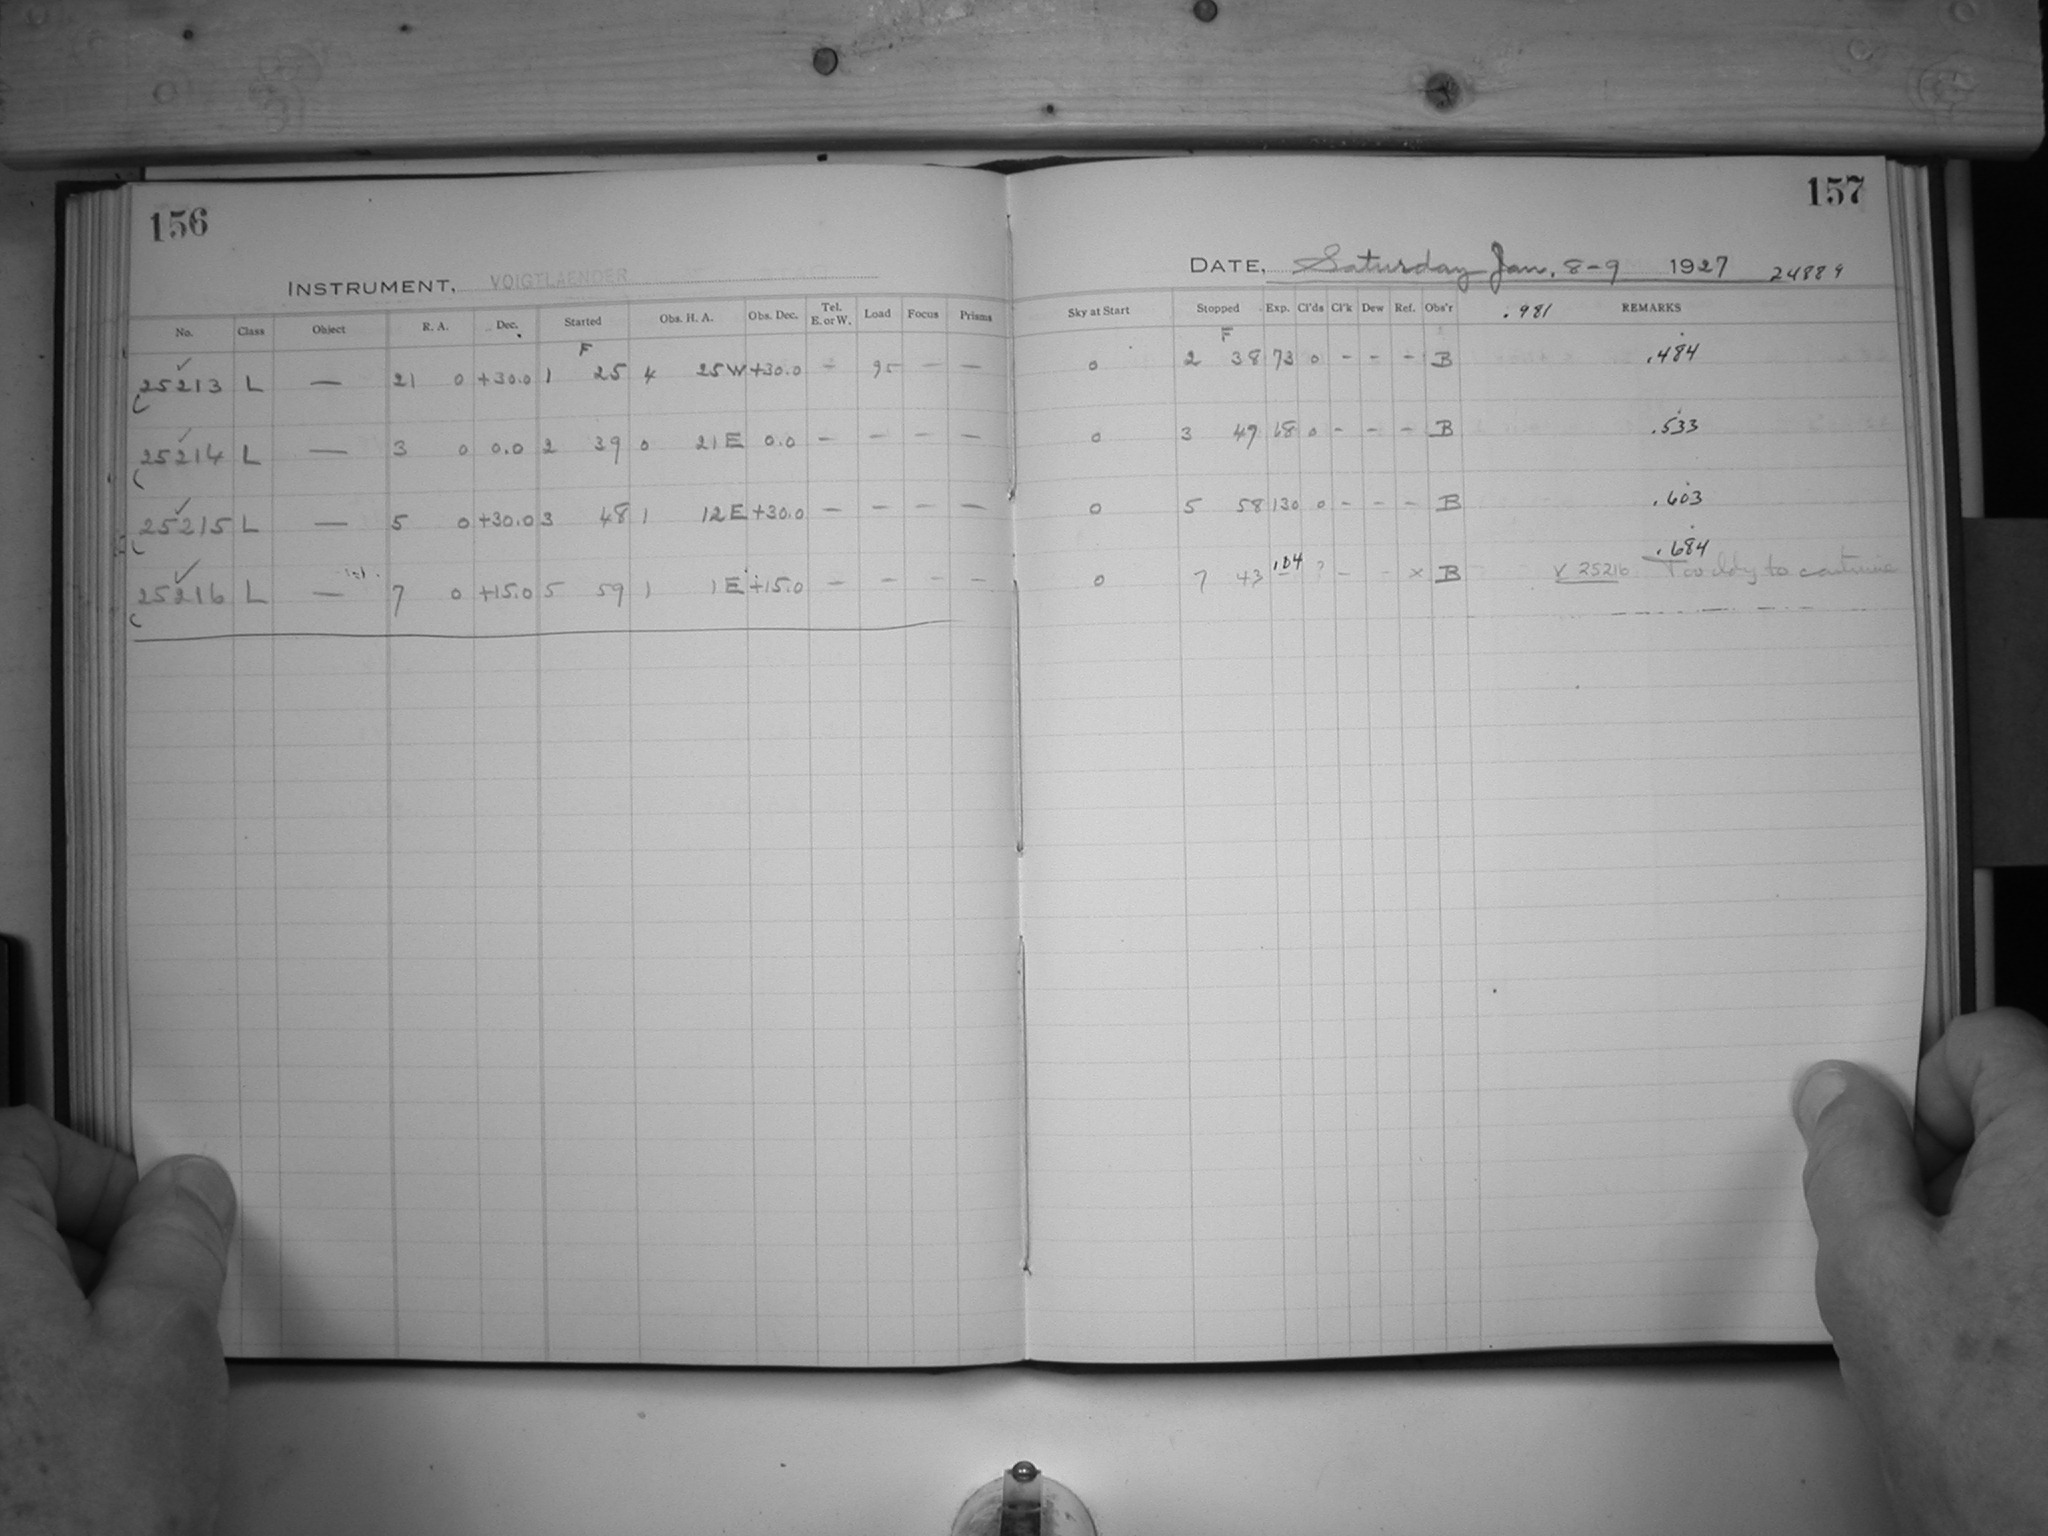 156
INSTRUMENT, VOIGTLAENDER
No. Class Object R. A. Dec. Started Obs. H. A. Obs. Dec. Tel. E. or W. Load Focus Prisms
F
25213 L — 21 0 +30.0 1 25 4 25 W +30.0 - 95 — —
25214 L — 3 0 0.0 2 39 0 21 E 0.0 — — — —
25215 L — 5 0 +30.0 3 48 1 12 E +30.0 — — — —
25216 L — 7 0 +15.0 5 59 1 1 E +15.0 — — — —
157
DATE, Saturday Jan. 8-9 1927 24889
Sky at Start Stopped Exp. Cl'ds Cl'k Dew Ref. Obs'r .981 REMARKS
F
0 2 38 73 0 - - - B .484
0 3 47 68 0 - - - B .533
0 5 58 130 0 - - - B .603
.684
0 7 43 104 ? - - × B V 25216 Too cldy to continue